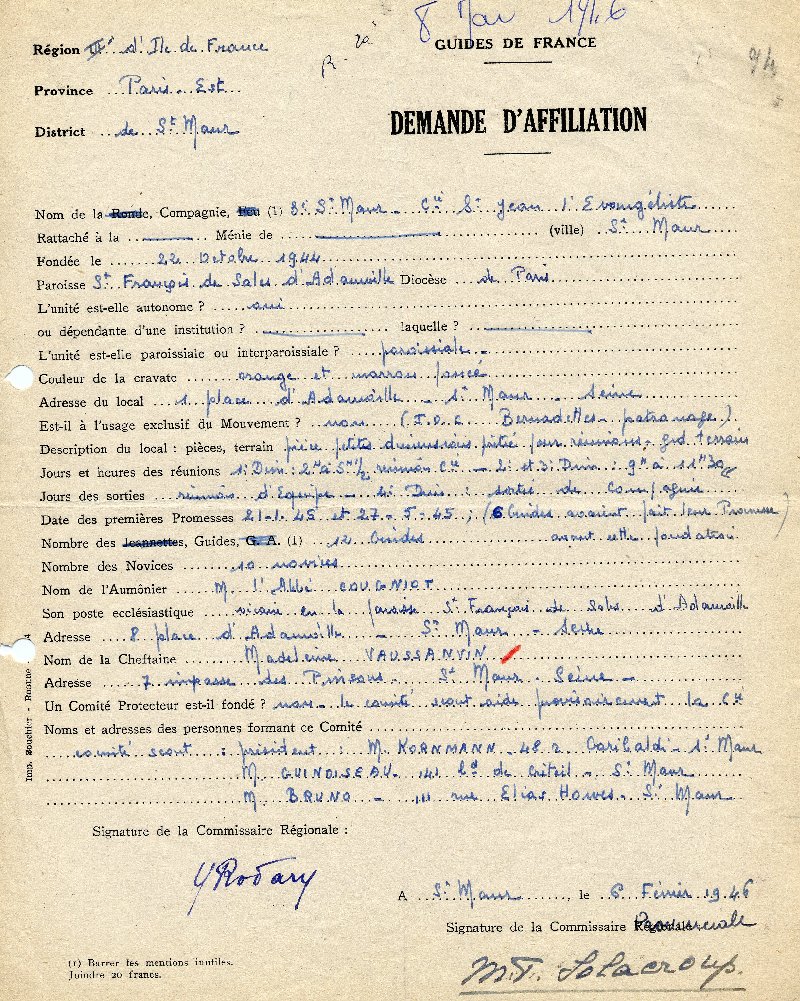 8 Mai 1946
GUIDES DE FRANCE
Région III° d'Ile de France
Province Paris-Est
District de St Maur
DEMANDE D'AFFILIATION
Nom de la Ronde, Compagnie, Feu (1) 3e St Maur - Cie St Jean l'Evangéliste
Rattaché à la Ménie de (ville) St Maur
Fondée le 22 Octobre 1944
Paroisse St François de Sales d'Adamville Diocèse de Paris
L'unité est-elle autonome ? oui
ou dépendante d'une institution ? laquelle ?
L'unité est-elle paroissiale ou interparoissiale ? paroissiale -
Couleur de la cravate orange et marron foncé
Adresse du local 1 place d'Adamville - St Maur - Seine
Est-il à l'usage exclusif du Mouvement ? non (J.O.C. Bernadettes - patronage)
Description du local : pièces, terrain pièce petites dimensions prêtée pour réunions - grd terrain
Jours et heures des réunions 1er Dim : 2h à 5h 1/2 réunion Cie - 2e et 3e Dim : 9h à 11h30
Jours des sorties réunion d'Equipe - 4e Dim : sortie de Compagnie
Date des premières Promesses 21-1-45 et 27-5-45 ; (6 Guides avaient fait leur Promesse
Nombre des Jeannettes, Guides, G. A. (1) 12 Guides avant cette fondation)
Nombre des Novices 10 novices
Nom de l'Aumônier M. l'Abbé COUGNIOT
Son poste ecclésiastique vicaire en la paroisse St François de Sales d'Adamville
Adresse 8 place d'Adamville - St Maur - Seine
Nom de la Cheftaine Madeleine VAUSSANVIN
Adresse 7 impasse des Pinsons - St Maur - Seine -
Un Comité Protecteur est-il fondé ? non - le comité scout aide provisoirement la Cie
Noms et adresses des personnes formant ce Comité
comité scout : président : M. KORNMANN - 48 r. Garibaldi - St Maur
M. GUINOISEAU - 141 bd de Créteil - St Maur
M. BRUNO - 111 rue Elias Howes - St Maur
Imp. Bouchier - Roanne
Signature de la Commissaire Régionale :
Y Rodary
A St Maur, le 6 Février 1946
Signature de la Commissaire Régionale Provinciale
M.T. Solacroup.
(1) Barrer les mentions inutiles.
Joindre 20 francs.